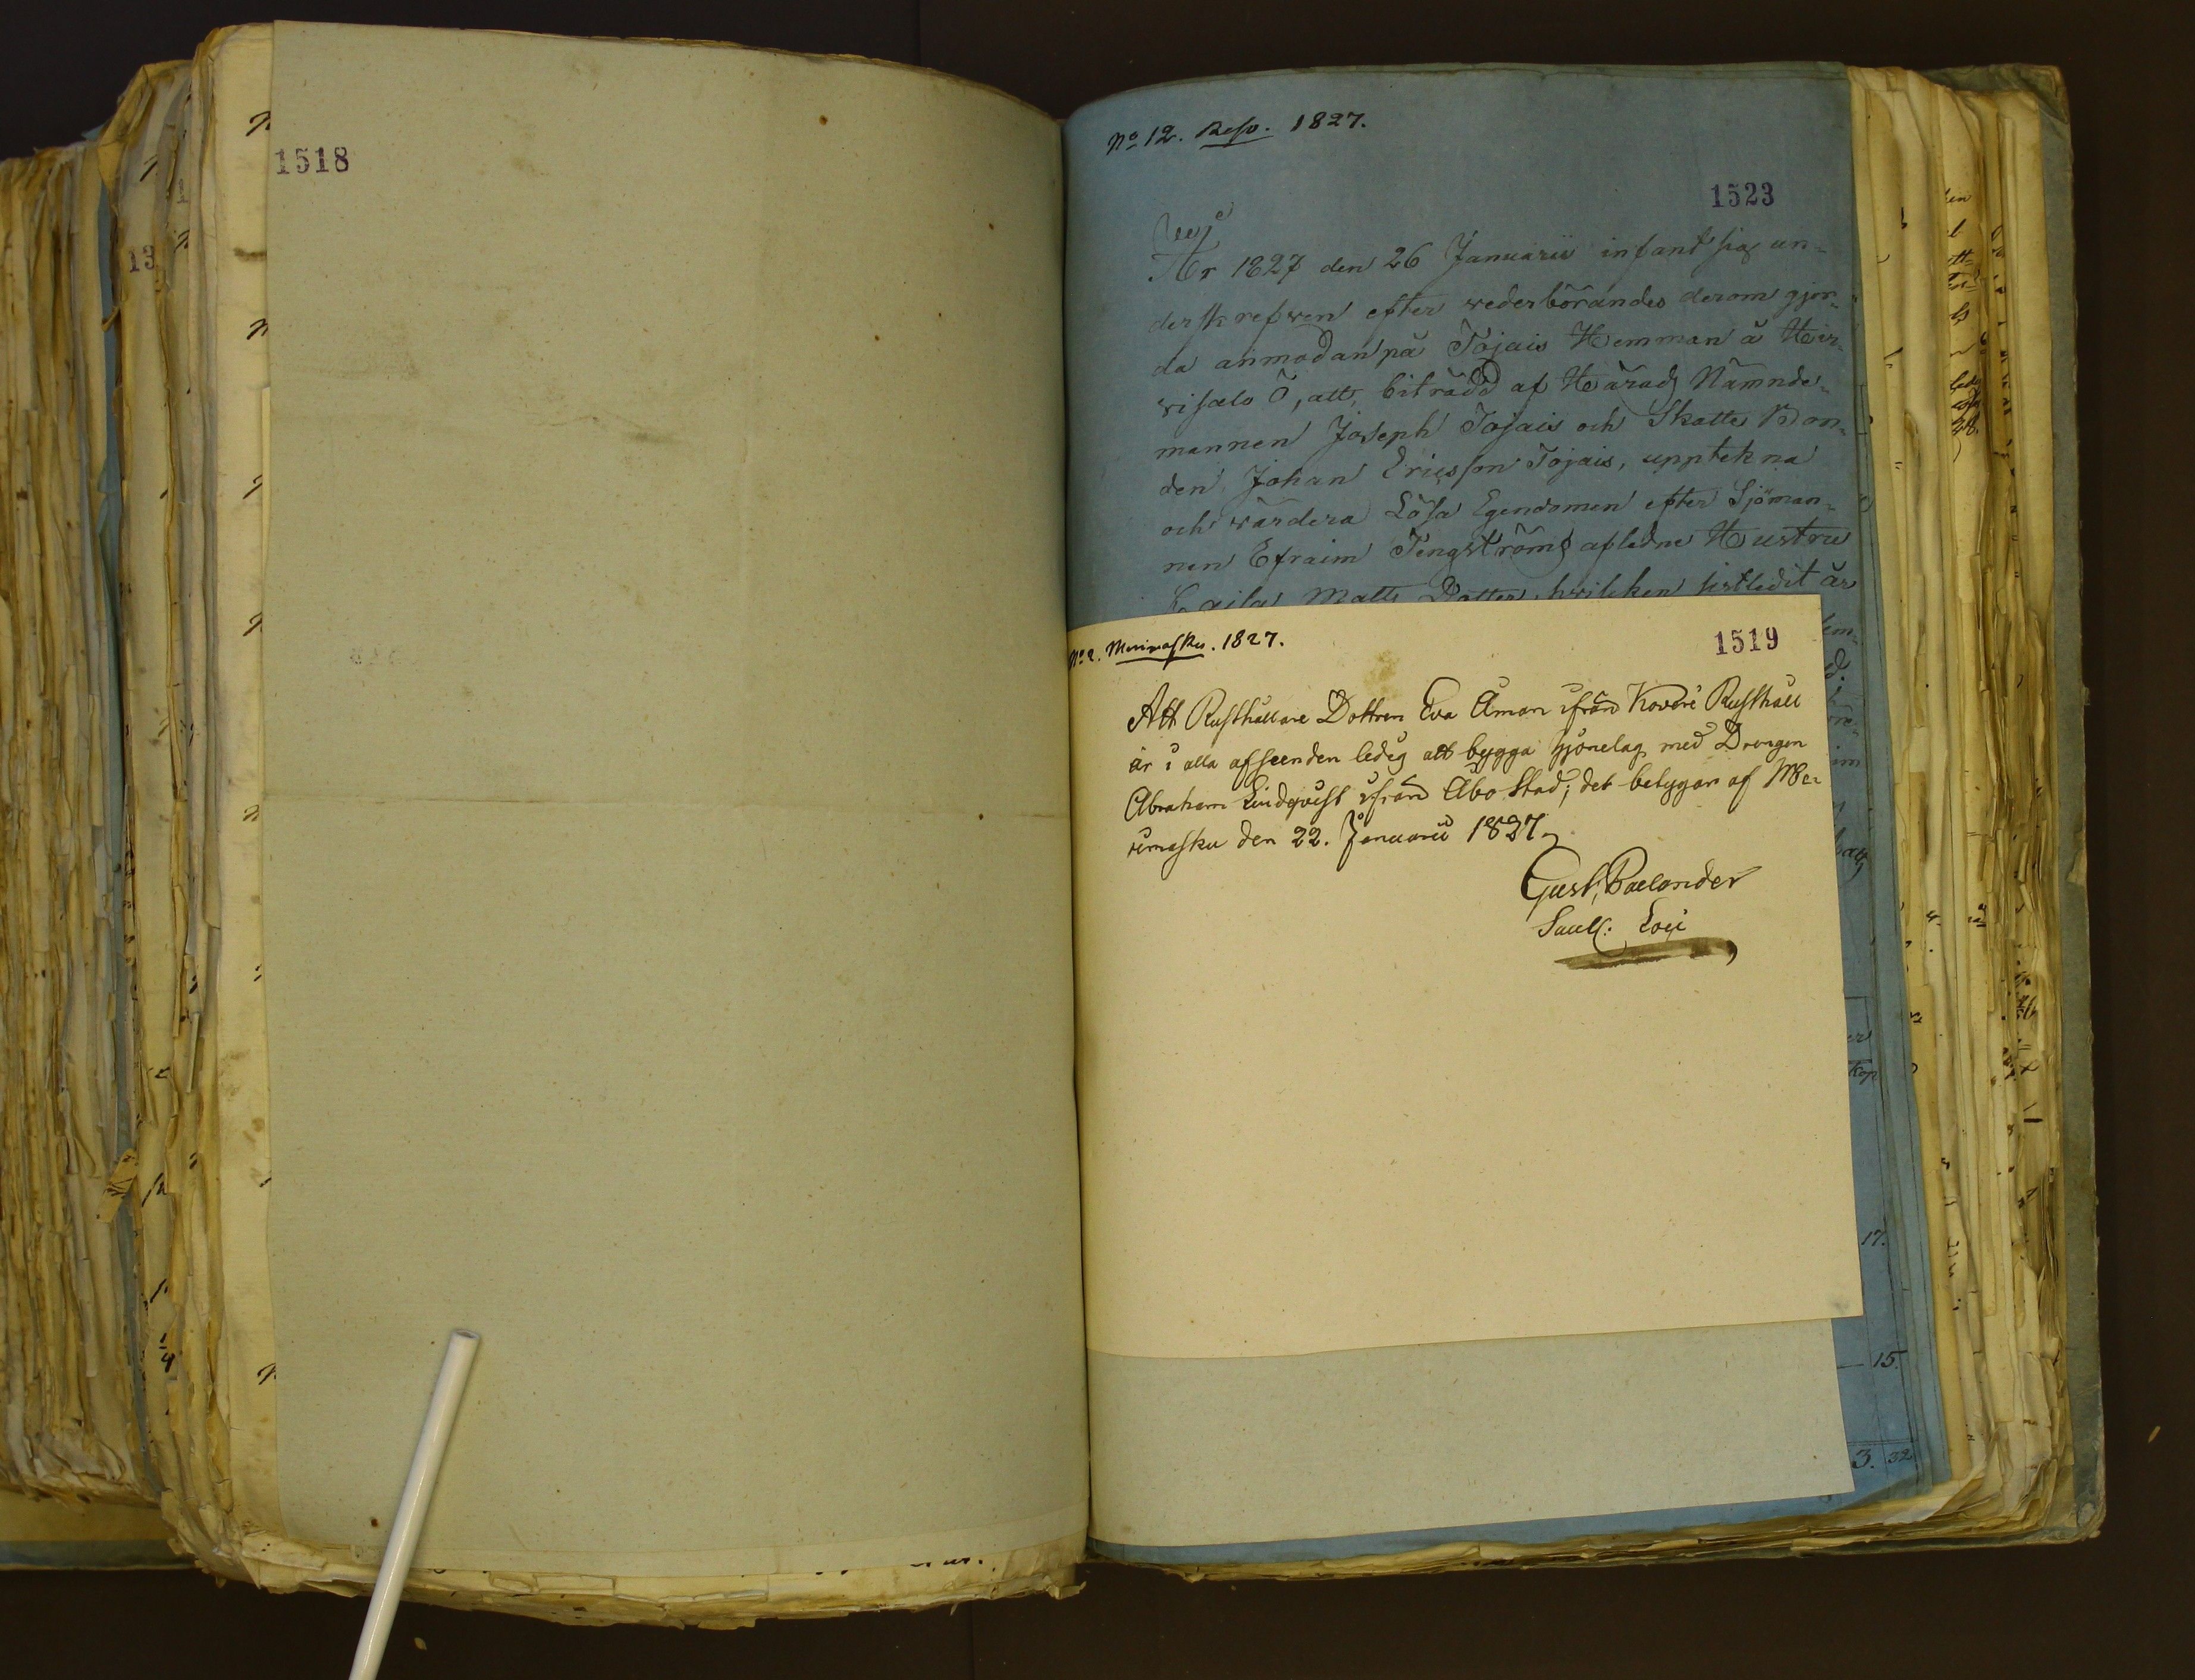 1518
No 12. Reso. 1827.
1523
År 1827 den 26 Januarii infant sig un-
derskrefven efter wederbörandes derom gjor-
da anmodan på Tojais Hemman å Hir-
visalo Ö, att, biträdd af Härads Nämnde-
mannen Joseph Tojais och Skatte Bon-
den Johan Ericsson Tojais, upptekna
och wärdera Lösa Egendomen efter Sjöman-
nen Efraim Tengströms afledne Hustru
Caisa Matts Dotter, hvilken sistledit år
No 2. Merimasku. 1827.
1519
Att Rusthållare Dottren Eva Åman ifrån Koveri Rusthåll
är i alla afseenden ledig att bygga hjonelag med Drengen
Abraham Lindqvist ifrån Åbo Stad; det betygar af Me-
rimasku den 22. Januarii 1827
Gust. Paelander
Sacell. Loci
Kop
17.
15.
3. 32